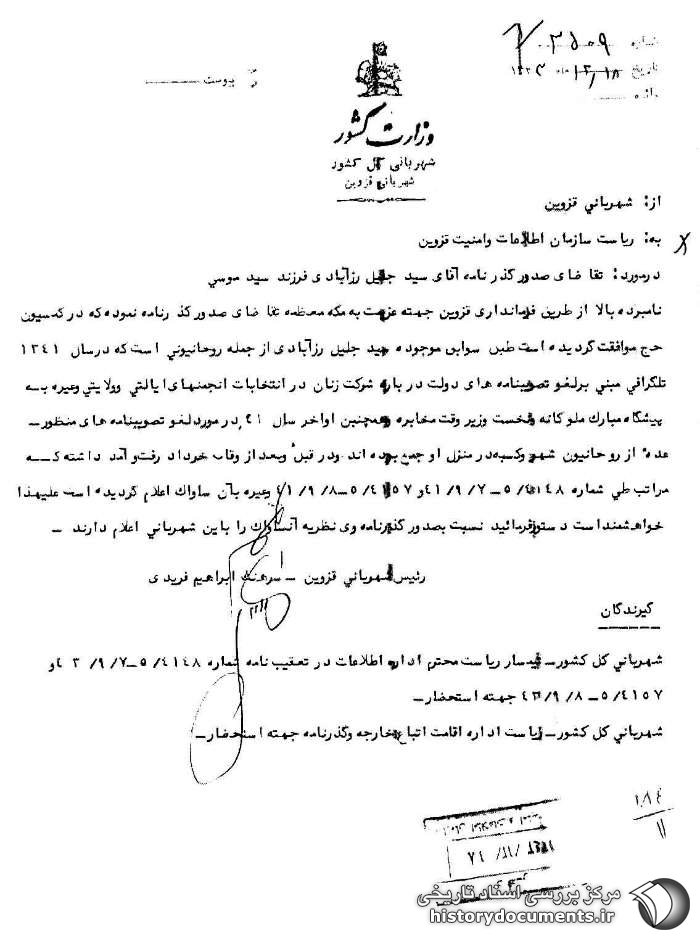 شماره ۳۵۰۹
تاریخ ۱۲/۱۸ ماه ۱۳۴۳
دائره
پیوست
وزارت کشور
شهربانی کل کشور
شهربانی قزوین
از: شهرباني قزوین
به: ریاست سازمان اطلاعات وامنیت قزوین
درمورد: تقاضای صدور گذرنامه آقای سید جلیل رزآبادی فرزند سید موسي
نامبرده بالا از طریق فرمانداری قزوین جهته عزیمت به مکه معظمه تقاضای صدور گذرنامه نموده که در کمسیون
حج موافقت گردیده است طبق سوابق موجوده سید جلیل رزآبادی از جمله روحانیوني است که در سال ۱۳٤۱
تلگرافي مبني بر لغو تصویبنامه های دولت در باره شرکت زنان در انتخابات انجمنهای ایالتي وولایتي وغیره به
پیشگاه مبارك ملوکانه ونخست وزیر وقت مخابره وهمچنین اواخر سال ٤۱ در مورد لغو تصویبنامه های منظور ـ
عده از روحانیون شهر وکسبه در منزل او جمع بوده اند ودر قبل وبعد از وقایع خرداد رفت و آمد داشته که
مراتب طي شماره ٥/٤۱٤٨ـ٤۱/۹/۷ و ٥/٤۱٥۷ـ٤۱/۹/٨ وغیره بآن ساواك اعلام گردیده است علیهذا
خواهشمند است دستور فرمائید نسبت بصدور گذرنامه وی نظریه آنساواك را باین شهرباني اعلام دارند ـ
رئیس شهرباني قزوین ـ سرهنگ ابراهیم فریدی
گیرندگان
شهرباني کل کشورـ تیمسار ریاست محترم اداره اطلاعات در تعقیب نامه شماره ٥/٤۱٤٨ـ٤۳/۹/۷ و
٥/٤۱٥۷ـ٤۳/۹/٨ جهته استحضارـ
شهرباني کل کشورـ ریاست اداره اقامت اتباع خارجه وگذرنامه جهته استحضارـ
۱۸٤
۱۱
۱۳٤۳/۱۲/۱۸
مرکز بررسی اسناد تاریخی
historydocuments.ir